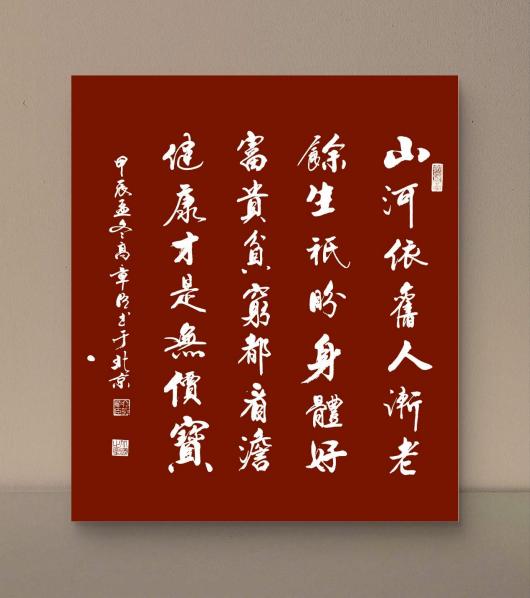 山河依舊人漸老
餘生祇盼身體好
富貴貧窮都看澹
健康才是無價寶
甲辰孟冬高章乃书于北京